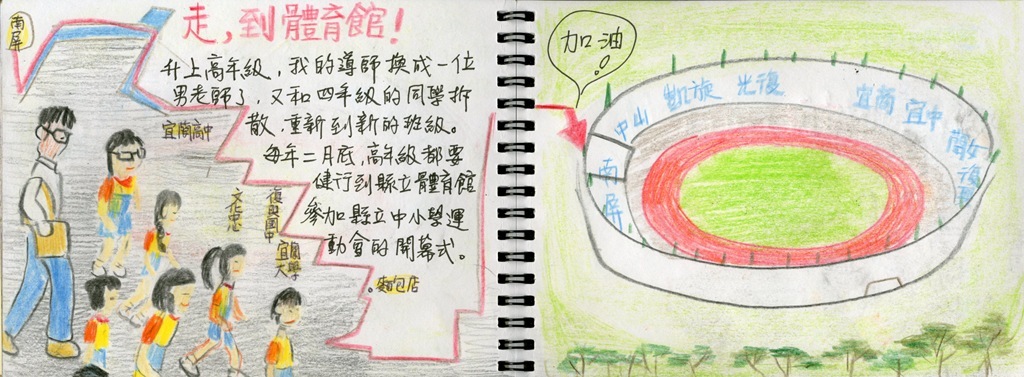 南屏
走，到體育館！
升上高年級，我的導師換成一位
男老師了，又和四年級的同學拆
散，重新到新的班級。
每年二月底，高年級都要
健行到縣立體育館
參加縣立中小學運
動會的開幕式。
宜蘭高中
文忠
復興國中
宜蘭大學
麵包店
加油！
中山
凱旋
光復
宜蘭
宜中
蘭女
復興
南屏